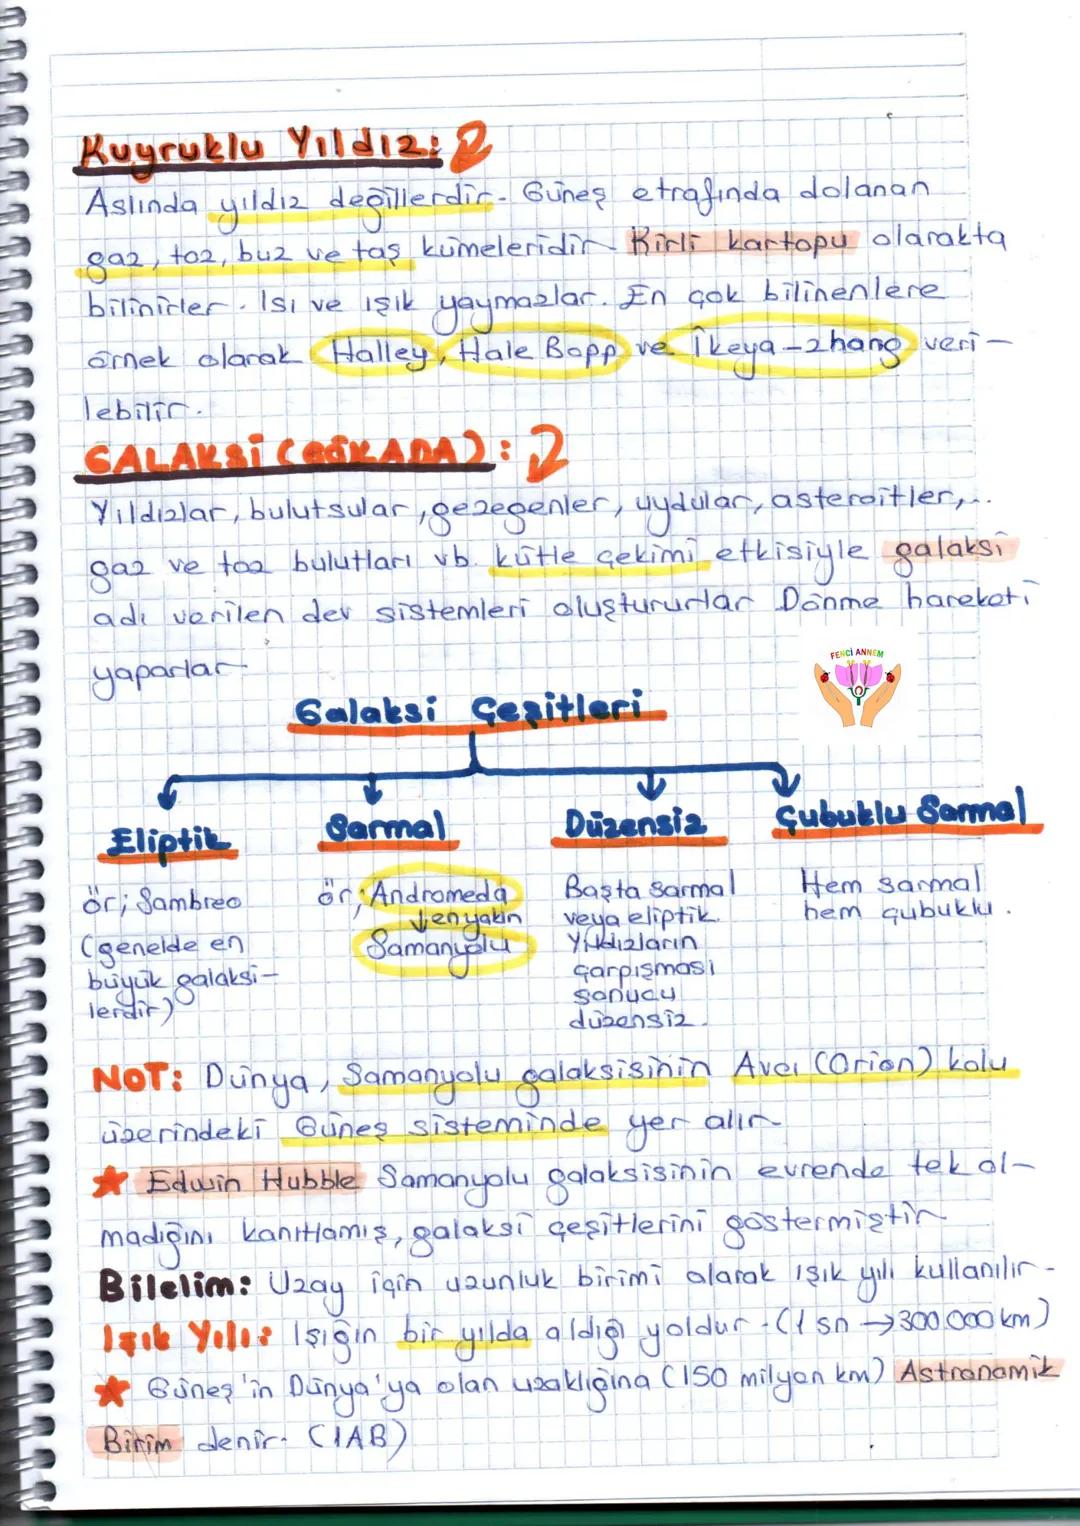 Kuyruklu Yıldız:
Aslında yıldız değillerdir. Güneş etrafında dolanan
gaz, toz, buz ve taş kümeleridir. Kirli kartopu olarakta
bilinirler. Isı ve ışık yaymazlar. En çok bilinenlere
örnek olarak Halley, Hale Bopp ve İkeya-zhang veri-
lebilir.
GALAKSİ (GÖKADA):
Yıldızlar, bulutsular, gezegenler, uydular, asteroitler,..
gaz ve toz bulutları vb. kütle çekimi etkisiyle galaksi
adı verilen dev sistemleri oluştururlar Dönme hareketi
yaparlar
FENCİ ANNEM
Galaksi Çeşitleri
Eliptik Sarmal Düzensiz Çubuklu Sarmal
ör; Sambreo
(genelde en
büyük galaksi-
lerdir)
ör; Andromeda
↓ en yakın
Samanyolu
Başta sarmal
veya eliptik
Yıldızların
çarpışması
sonucu
düzensiz.
Hem sarmal
hem çubuklu.
NOT: Dünya, Samanyolu galaksisinin Avcı (Orion) kolu
üzerindeki Güneş sisteminde yer alır
★ Edwin Hubble Samanyolu galaksisinin evrende tek ol-
madığını kanıtlamış, galaksi çeşitlerini göstermiştir
Bilelim: Uzay için uzunluk birimi olarak ışık yılı kullanılır.
Işık Yılı: Işığın bir yılda aldığı yoldur. (1 sn → 300.000 km)
★ Güneş'in Dünya'ya olan uzaklığına (150 milyon km) Astronomik
Birim denir. (1AB)